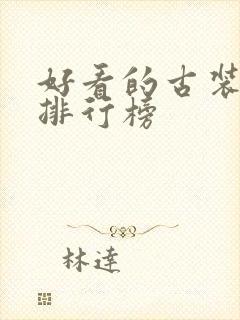 好看的古装
排行榜
林達